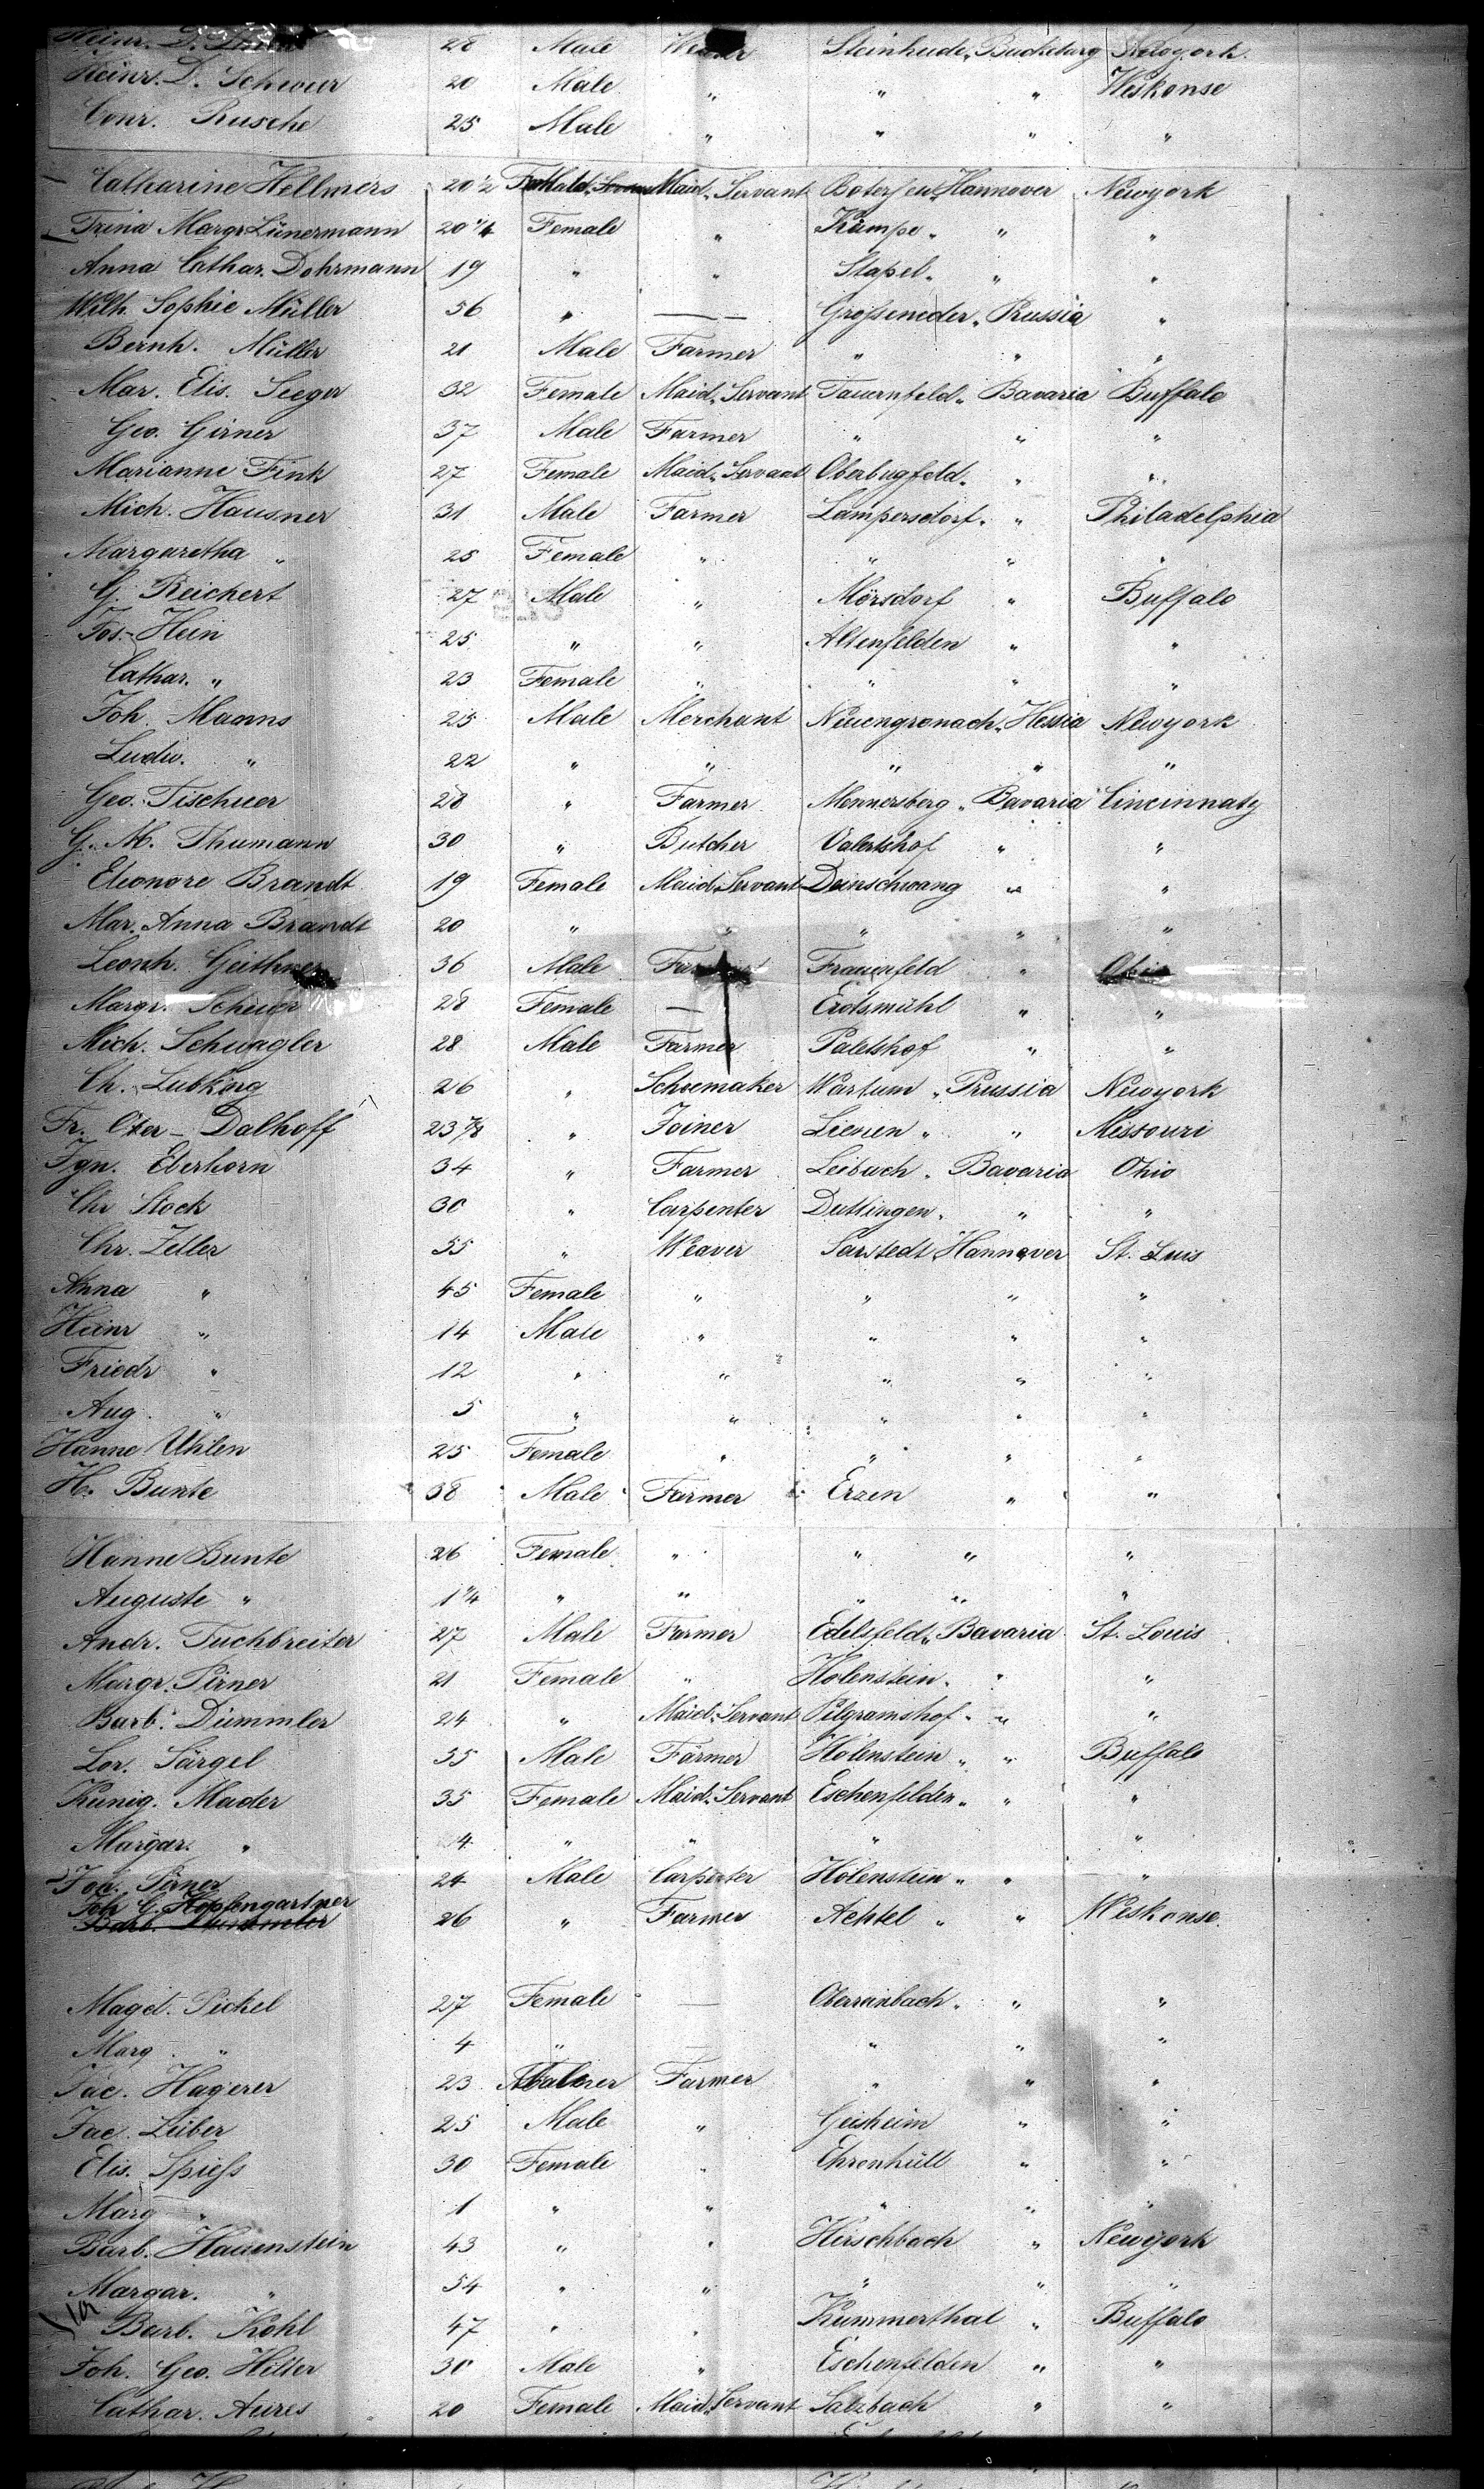 Heinr. D. 28 Male Steinhude, Buckeburg Newyork.
Heinr. D. Schwier 20 Male " " " Weskonse
Conr. Rusche 25 Male " " " "
Catharine Hellmers 20 1/2 Maid. Servant Hannover Newyork
Trina Margr Lünermann 20 1/4 Female " Kampe " " "
Anna Cathar. Dohrmann 19 " " Stapel " " "
Wilh. Sophie Müller 56 " — Großeneder " Prussia "
Bernh. Müller 21 Male Farmer " " "
Mar. Elis. Seeger 32 Female Maid. Servant Tauernfeld " Bavaria Buffalo
Geo. Girner 37 Male Farmer " " "
Marianne Fink 27 Female Maid. Servant " "
Mich. Hausner 31 Male Farmer Lampersdorf " " Philadelphia
Margaretha " 25 Female " " " "
G. Reichert 27 Male " Mörsdorf " Buffalo
Jos. Hein 25 " " Altenfelden " "
Cathar. " 23 Female " " " "
Joh. Manns 25 Male Merchant Neuengronach " Hessia Newyork
Ludw. " 22 " " " " "
Geo. Tischner 28 " Farmer Mennersberg " Bavaria Cincinnaty
G. M. Thumann 30 " Butcher " "
Eleonore Brandt 19 Female Maid. Servant Deinschwang " "
Mar. Anna Brandt 20 " " " " "
Leonh. Geithner 36 Male Frauenfeld " Ohio
Margr. Scheuer 28 Female — " "
Mich. Schwagler 28 Male Farmer Paletshof " "
Ch. Lubking 26 " Schoemaker Wartum " Prussia Newyork
Fr. Dalhoff 23 7/8 " Joiner Lienen " " Missouri
Ign. Eberhorn 34 " Farmer Leibach " Bavaria Ohio
Chr Stock 30 " Carpenter " " "
Chr. Zeller 55 " Weaver Sarstedt " Hannover St. Luis
Anna " 45 Female " " " "
Heinr " 14 Male " " " "
Friedr " 12 " " " " "
Aug. " 5 " " " " "
Hanne Uhlen 25 Female " " " "
H. Bunte 38 Male Farmer Erzen " "
Hanne Bunte 26 Female " " " "
Auguste " 1 1/4 " " " " "
Andr. Tuchbreiter 27 Male Farmer Edelsfeld " Bavaria St. Louis
Margr. Pirner 21 Female " Holenstein " " "
Barb. Dümmler 24 " Maid. Servant Pilgramshof " " "
Lor. Särgel 35 Male Farmer Holenstein " " Buffalo
Kunig. Mader 35 Female Maid. Servant Eschenfelden " " "
Margar. " 4 " " " "
Joh. Pirner 24 Male Carpenter Holenstein " " "
Joh G. Hopfengartner
Barb. Dummler 26 " Farmer Achtel " " Weskonse
Magd. Pickel 27 Female — Oberreinbach " " "
Marg. " 4 " " " "
Jac. Hagerer 23 Farmer " " "
Jac. Leiber 25 Male " Geisheim " "
Elis. Spieß 30 Female " Ehrenhüll " "
Marg " 1 " " " " "
Barb. Hauenstein 43 " " Hirschbach " Newyork
Margar. " 54 " " " " "
Barb. Kohl 47 " " Kummerthal " Buffalo
Joh. Geo. Hiller 30 Male " Eschenfelden " "
Cathar. Aures 20 Female Maid. Servant Salzbach " "